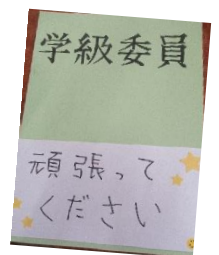 学級委員
頑張って
ください